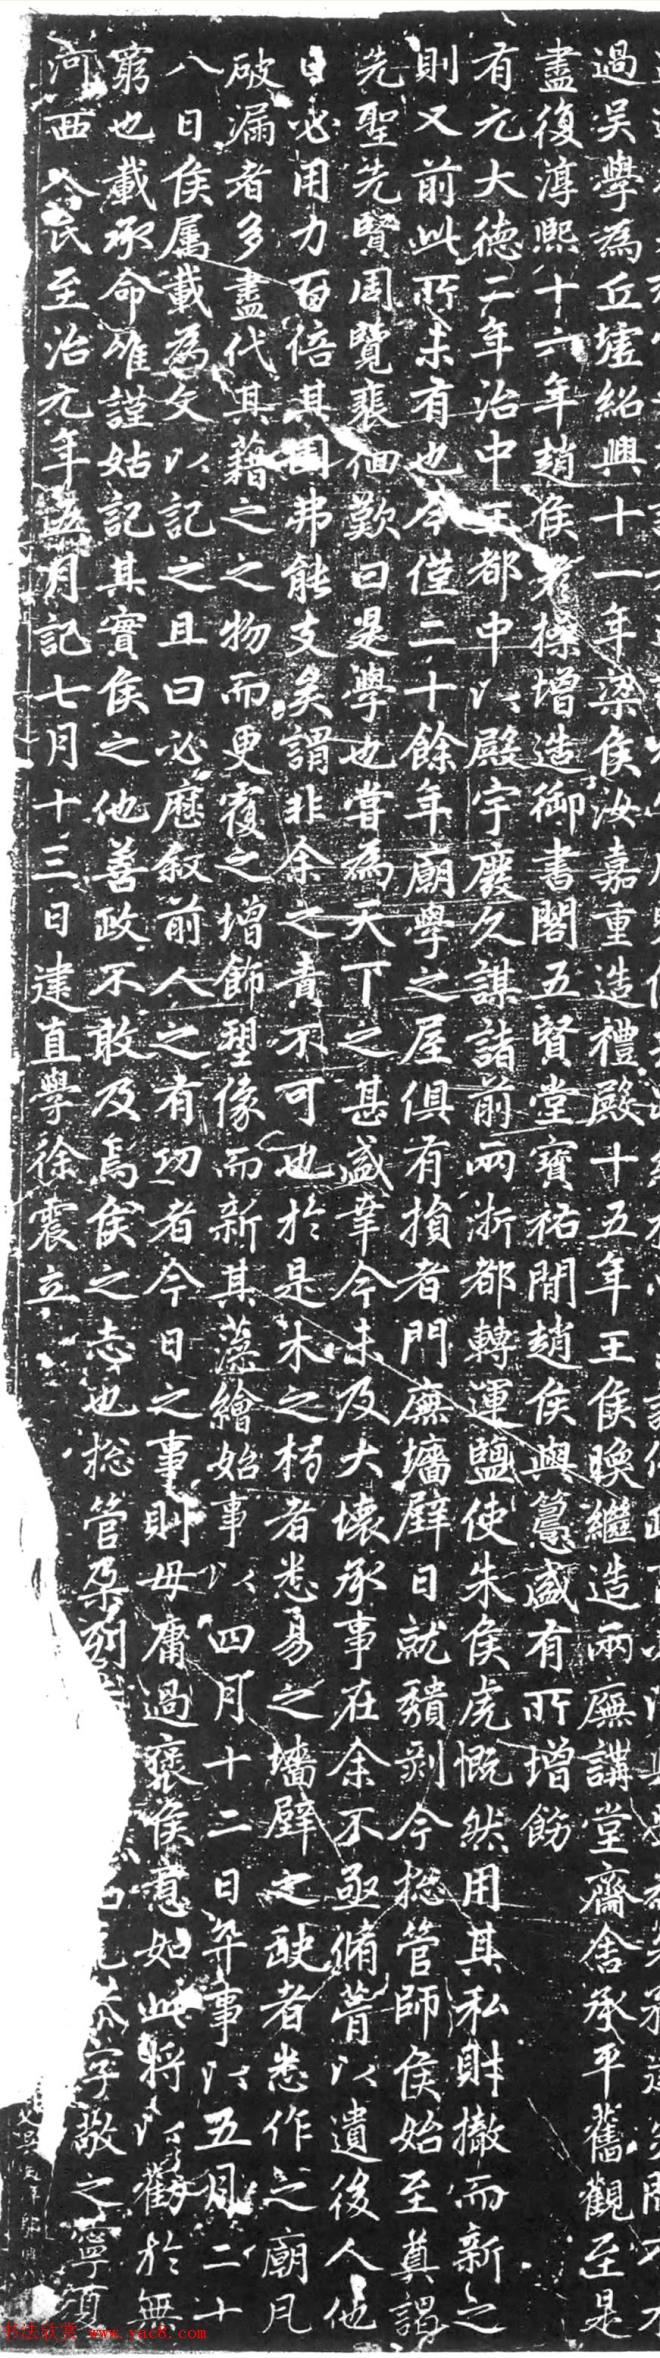 過吳學為丘墟紹興十一年梁侯汝嘉重造禮殿十五年王侯㬇繼造兩廡講堂齋舍承平舊觀至是
盡復淳熙十六年趙侯彥操增造御書閣五賢堂寶祐間趙侯與𥲅盛有所增飭
有元大德二年治中王都中以殿宇廢久謀諸前兩浙都轉運鹽使朱侯虎慨然用其私財撤而新之
則又前此所未有也今僅二十餘年廟學之屋俱有損者門廡墻壁日就隤剥今揔管師侯始至奠謁
先聖先賢周覽裴佪歎曰是學也嘗為天下之甚盛葺今未及大壞承事在余不亟脩葺以遺後人他
日必用力百倍其固弗能支矣謂非余之責不可也於是木之朽者悉易之墻壁之缺者悉作之廟凡
破漏者多盡代其藉之之物而更覆之增飾塑像而新其藻繪始事以四月十二日卒事以五月二十
八日侯属載為文以記之且曰必歷敘前人之有功者今日之事則毋庸過褒侯意如此將以勸於無
窮也載承命惟謹姑記其實侯之他善政不敢及焉侯之志也揔管朶列 字敬之寧夏
河西人氏至治元年五月記七月十三日建直學徐震立
书法欣赏 www.yac8.com